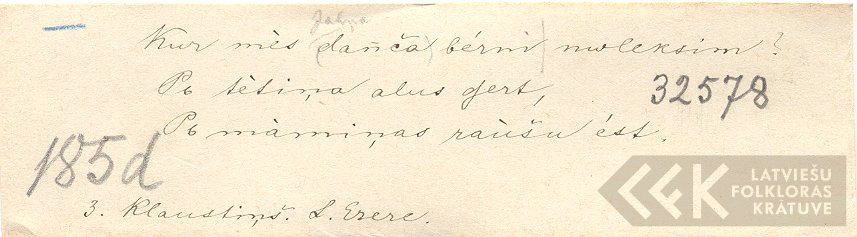 Jāņa
Kur mēs (danča) bērni noleksim?
Pō tētiņa alus dzert,
Pō māmiņas raūšu ēst.
32578
185d
3. Klaustiņš. L. Ezere.
LATVIEŠU
FOLKLORAS
KRĀTUVE